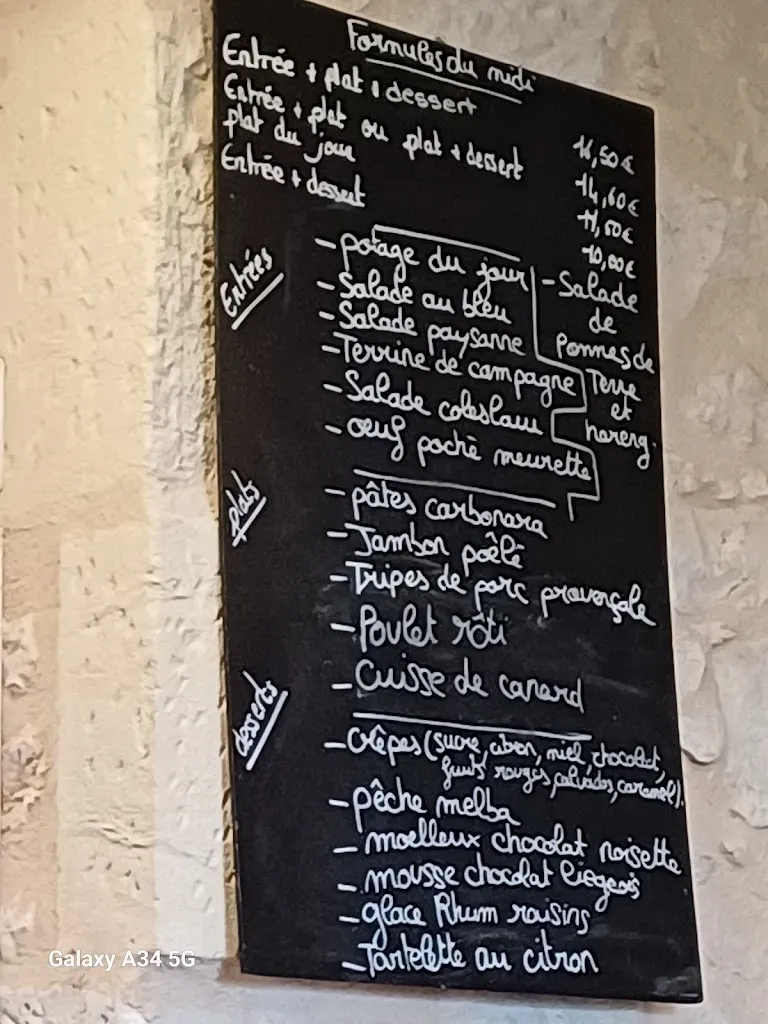 Formules du midi
Entrée + plat + dessert 16,50€
Entrée + plat ou plat + dessert 14,60€
plat du jour 11,50€
Entrée + dessert 10,00€
Entrées
- potage du jour
- Salade au bleu
- Salade paysanne
- Terrine de campagne
- Salade coleslaw
- œuf poché meurette
- Salade
de
pommes de
Terre
et
hareng.
plats
- pâtes carbonara
- Jambon poêlé
- Tripes de porc provençale
- Poulet rôti
- Cuisse de canard
desserts
- Crêpes (sucre, citron, miel, chocolat,
fruits rouges, calvados, caramel).
- pêche melba
- moelleux chocolat noisette
- mousse chocolat liegeois
- glace Rhum raisins
- Tartelette au citron
Galaxy A34 5G